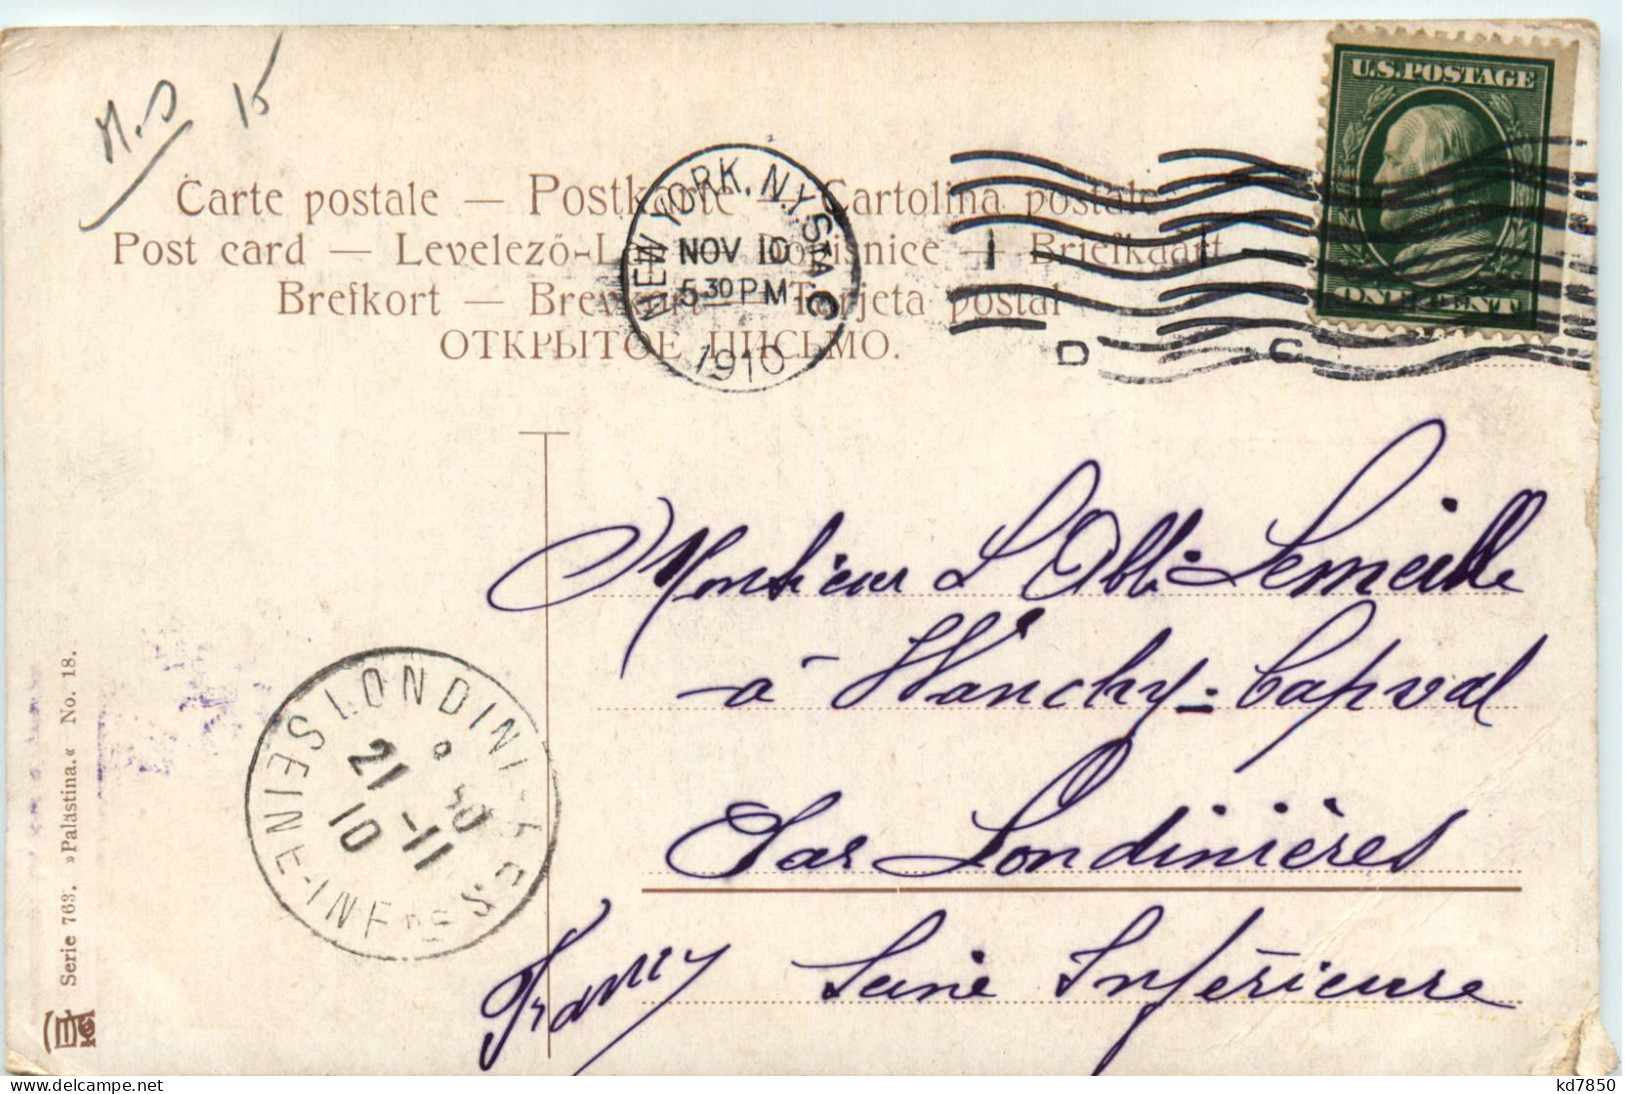 M.S 15
U.S.POSTAGE
ONE CENT
Carte postale — Postkarte — Cartolina postale
Post card — Levelező-L — Dopisnice — Briefkaart
Brefkort — Brevkort — Tarjeta postal
ОТКРЫТОЕ ПИСЬМО.
NEW YORK, N.Y. STA. C
NOV 10
5 30 PM
1910
D C
Monsieur L'Abbé Lemeille
à Wanchy-Capval
Par Londinières
Seine Inférieure
France
LONDINIÈRES
SEINE-INFRE
21-11
10
Serie 763. »Palästina.« No. 18.
delcampe.net
kd7850